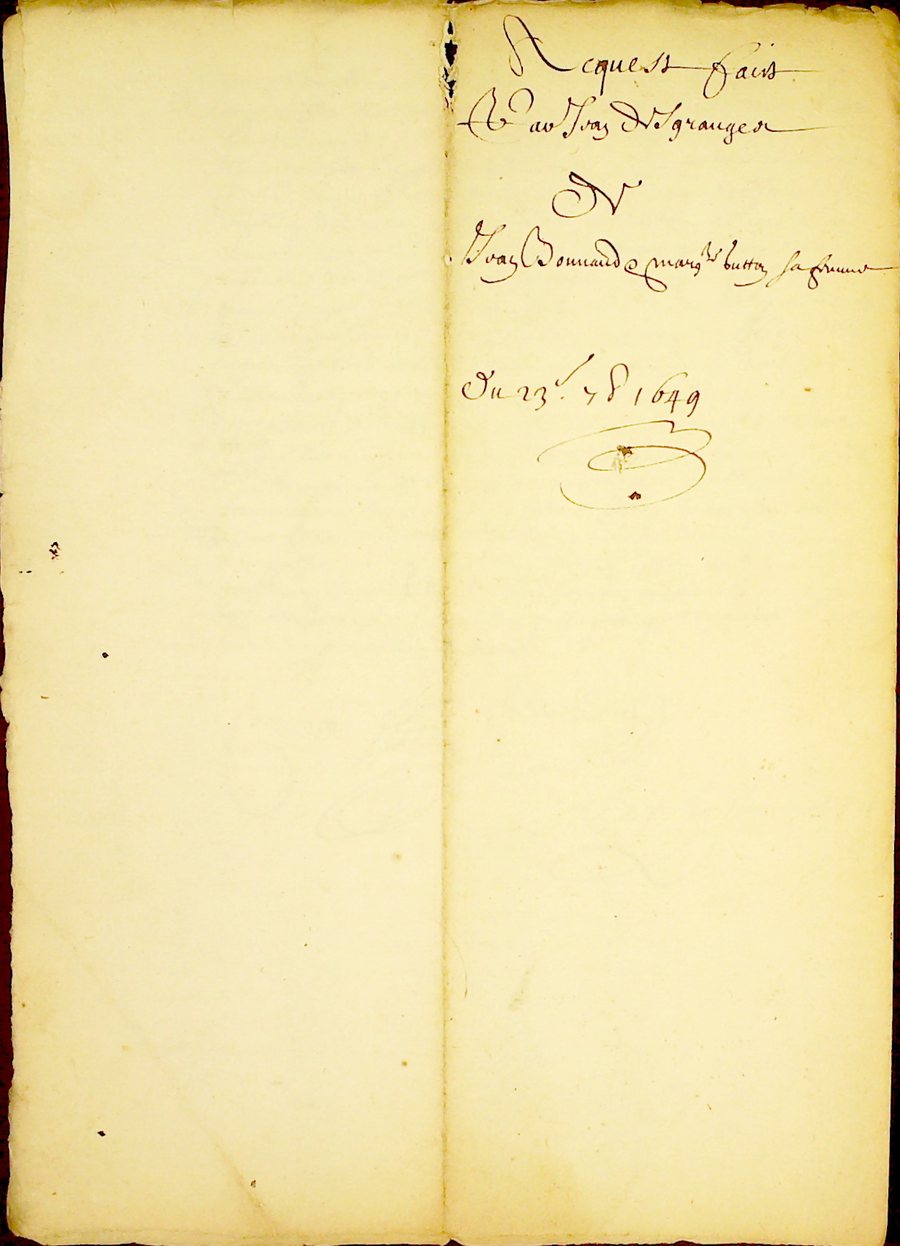 Acquest faict
Par Jean Desgranges
De
Jean Bonnaud & marg^te button sa femme
Du 23^e 7^b 1649